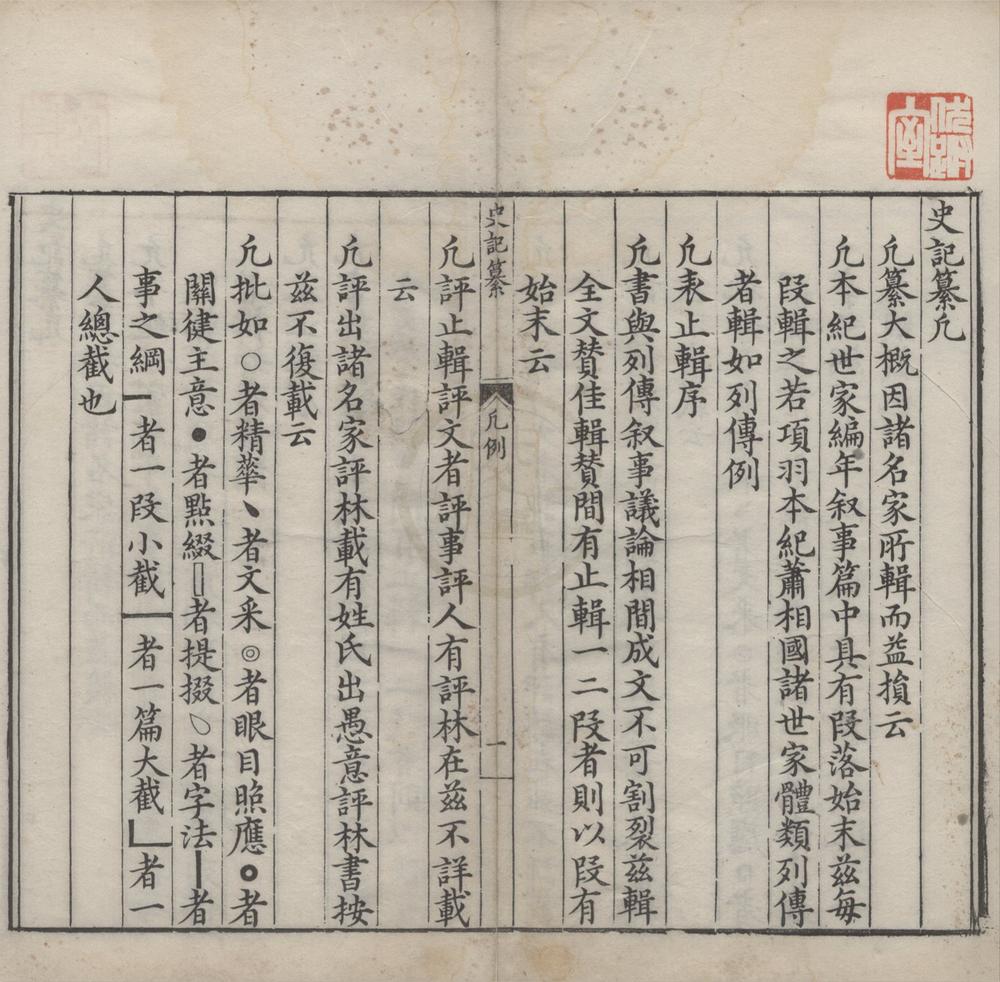 史記纂凡
凡纂大概因諸名家所輯而益損云
凡本紀世家編年叙事篇中具有段落始末茲每
段輯之若項羽本紀蕭相國諸世家體類列傳
者輯如列傳例
凡表止輯序
凡書與列傳叙事議論相間成文不可割裂茲輯
全文賛佳輯賛間有止輯一二段者則以段有
始末云
史記纂
凡例
一
凡評止輯評文者評事評人有評林在茲不詳載
云
凡評出諸名家評林載有姓氏出愚意評林書按
茲不復載云
凡批如○者精華丶者文采◎者眼目照應⚬者
關鍵主意●者點綴‖者提掇〇者字法┃者
事之綱━者一段小截━━者一篇大截」者一
人總截也